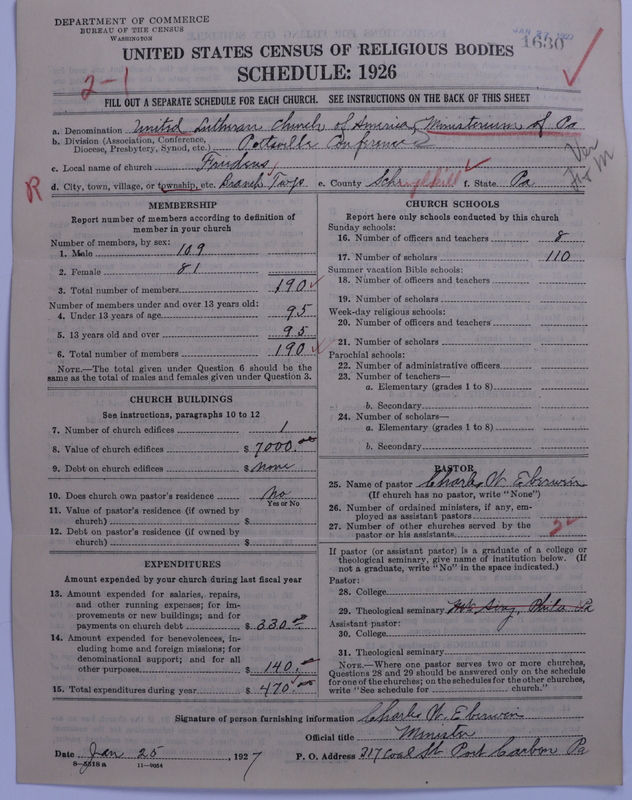 DEPARTMENT OF COMMERCE
BUREAU OF THE CENSUS
WASHINGTON
JAN 27 1927
1630
UNITED STATES CENSUS OF RELIGIOUS BODIES
SCHEDULE: 1926
2-1
FILL OUT A SEPARATE SCHEDULE FOR EACH CHURCH. SEE INSTRUCTIONS ON THE BACK OF THIS SHEET
a. Denomination United Lutheran Church of America, Ministerium of Pa
b. Division (Association, Conference, Diocese, Presbytery, Synod, etc.) Pottsville Conference
c. Local name of church Friedens
R d. City, town, village, or township, etc. Branch Twp. e. County Schuylkill f. State Pa
MEMBERSHIP
Report number of members according to definition of member in your church
Number of members, by sex:
1. Male 109
2. Female 81
3. Total number of members 190
Number of members under and over 13 years old:
4. Under 13 years of age 95
5. 13 years old and over 95
6. Total number of members 190
NOTE.—The total given under Question 6 should be the same as the total of males and females given under Question 3.
CHURCH BUILDINGS
See instructions, paragraphs 10 to 12
7. Number of church edifices 1
8. Value of church edifices $ 7000.00
9. Debt on church edifices $ None
10. Does church own pastor's residence No
Yes or No
11. Value of pastor's residence (if owned by church) $
12. Debt on pastor's residence (if owned by church) $
EXPENDITURES
Amount expended by your church during last fiscal year
13. Amount expended for salaries, repairs, and other running expenses; for improvements or new buildings; and for payments on church debt $ 330.00
14. Amount expended for benevolences, including home and foreign missions; for denominational support; and for all other purposes $ 140.00
15. Total expenditures during year $ 470.00
CHURCH SCHOOLS
Report here only schools conducted by this church
Sunday schools:
16. Number of officers and teachers 8
17. Number of scholars 110
Summer vacation Bible schools:
18. Number of officers and teachers
19. Number of scholars
Week-day religious schools:
20. Number of officers and teachers
21. Number of scholars
Parochial schools:
22. Number of administrative officers
23. Number of teachers—
a. Elementary (grades 1 to 8)
b. Secondary
24. Number of scholars—
a. Elementary (grades 1 to 8)
b. Secondary
PASTOR
25. Name of pastor Charles W. Eberwin
(If church has no pastor, write "None")
26. Number of ordained ministers, if any, employed as assistant pastors
27. Number of other churches served by the pastor or his assistants 2
If pastor (or assistant pastor) is a graduate of a college or theological seminary, give name of institution below. (If not a graduate, write "No" in the space indicated.)
Pastor:
28. College
29. Theological seminary Mt. Airy, Phila Pa
Assistant pastor:
30. College
31. Theological seminary
NOTE.—Where one pastor serves two or more churches, Questions 28 and 29 should be answered only on the schedule for one of the churches; on the schedules for the other churches, write "See schedule for church."
Signature of person furnishing information Charles W. Eberwin
Official title Minister
Date Jan 25, 1927 P. O. Address 317 Coal St Port Carbon Pa
8-5518a 11-9054